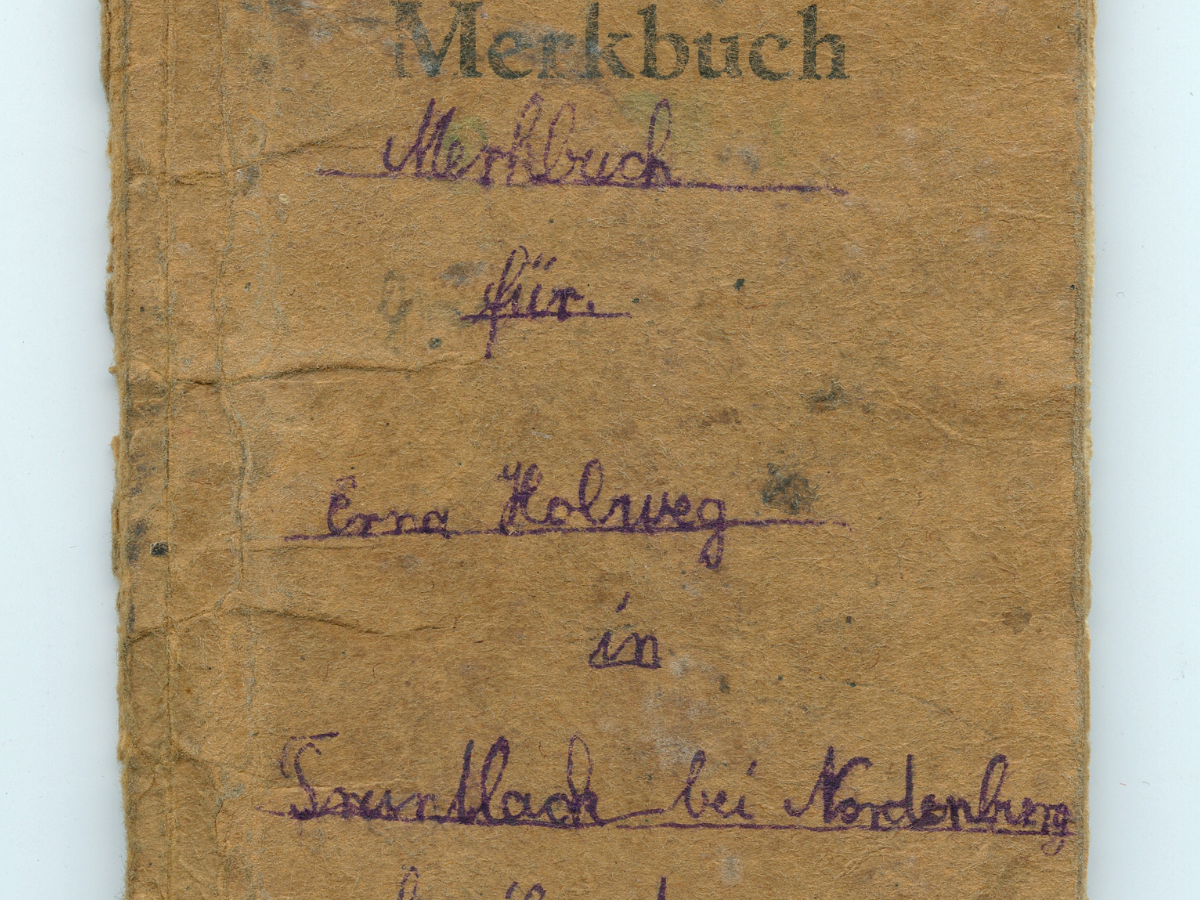 Merkbuch
Merkbuch
für.
Erna Holweg
in
Truntlack bei Nordenburg